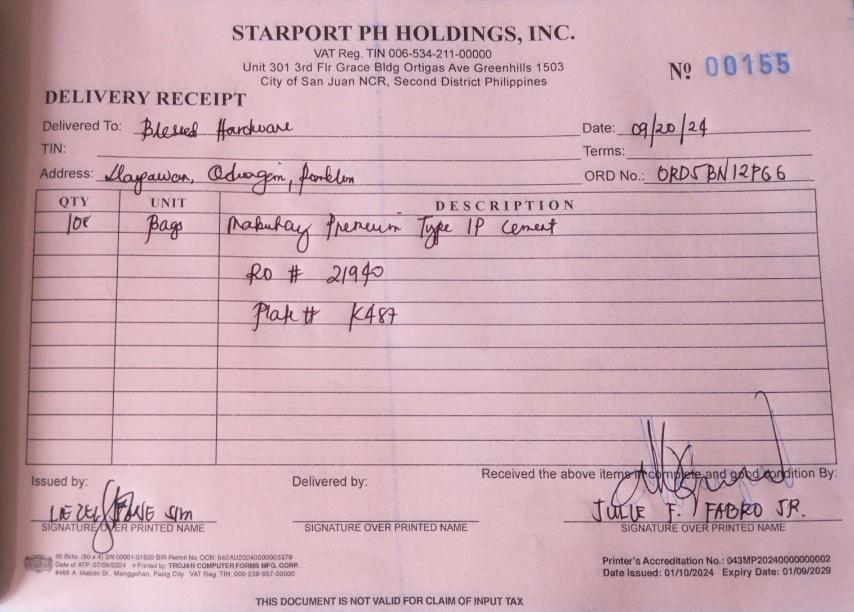 STARPORT PH HOLDINGS, INC.
VAT Reg. TIN 006-534-211-00000
Unit 301 3rd Flr Grace Bldg Ortigas Ave Greenhills 1503
City of San Juan NCR, Second District Philippines
Nº 00155
DELIVERY RECEIPT
Delivered To: Blessed Hardware Date: 09/20/24
TIN: Terms:
Address: ORD No.: ORD5BN12PG6
QTY UNIT DESCRIPTION
Bags Mabuhay Premium Type 1P Cement
RO # 21940
Plate # K487
Issued by: Delivered by: Received the above items in complete and good condition By:
JULIE F. FABRO JR.
SIGNATURE OVER PRINTED NAME SIGNATURE OVER PRINTED NAME SIGNATURE OVER PRINTED NAME
50 Bkls. (50 x 4) SN:00001-01500 BIR Permit No. OCN: 042AU20240000003379
Date of ATP: 07/09/2024 • Printed by: TROJAN COMPUTER FORMS MFG. CORP.
#488 A. Mabini St., Manggahan, Pasig City VAT Reg. TIN: 000-238-957-00000
Printer's Accreditation No.: 043MP20240000000002
Date Issued: 01/10/2024 Expiry Date: 01/09/2029
THIS DOCUMENT IS NOT VALID FOR CLAIM OF INPUT TAX